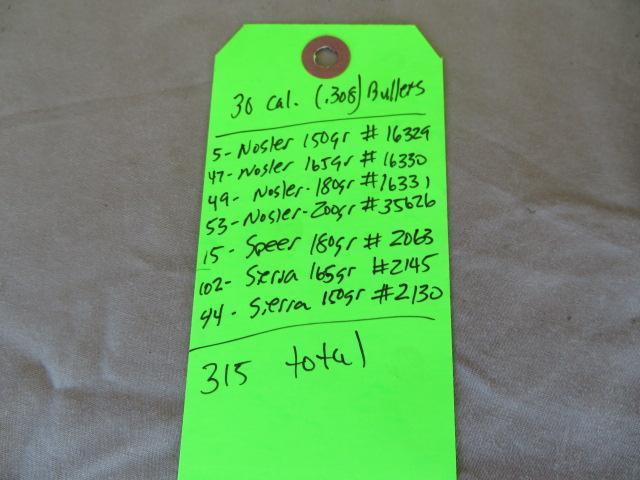 30 cal. (.308) Bullets
5- Nosler 150gr # 16329
47- Nosler 165gr # 16330
49- Nosler- 180gr #16331
53- Nosler- 200gr #35626
15- Speer 180gr # 2063
102- Sierra 165gr #2145
44- Sierra 150gr #2130
315 total